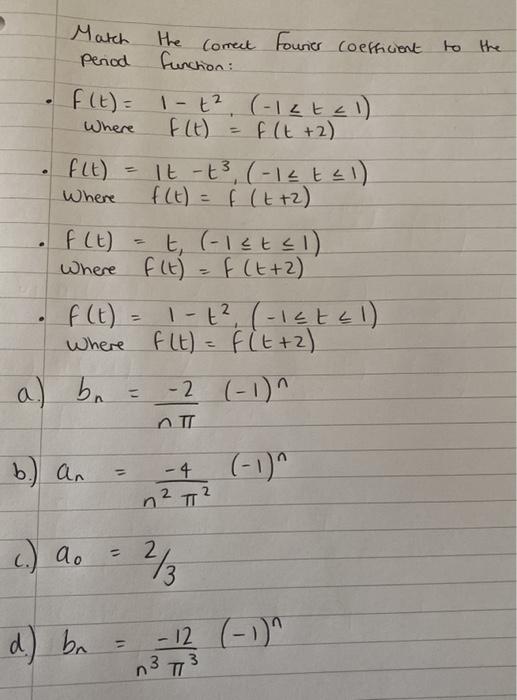 Match the correct Fourier coefficient to the
period function:
• f(t) = 1 - t², (-1 ≤ t ≤ 1)
where f(t) = f(t +2)
• f(t) = 1t - t³, (-1 ≤ t ≤ 1)
where f(t) = f (t+2)
• f(t) = t, (-1 ≤ t ≤ 1)
where f(t) = f (t+2)
• f(t) = 1 - t², (-1 ≤ t ≤ 1)
where f(t) = f(t+2)
a.) bn = -2/nπ (-1)ⁿ
b.) an = -4/n²π² (-1)ⁿ
c.) a₀ = 2/3
d.) bn = -12/n³π³ (-1)ⁿ